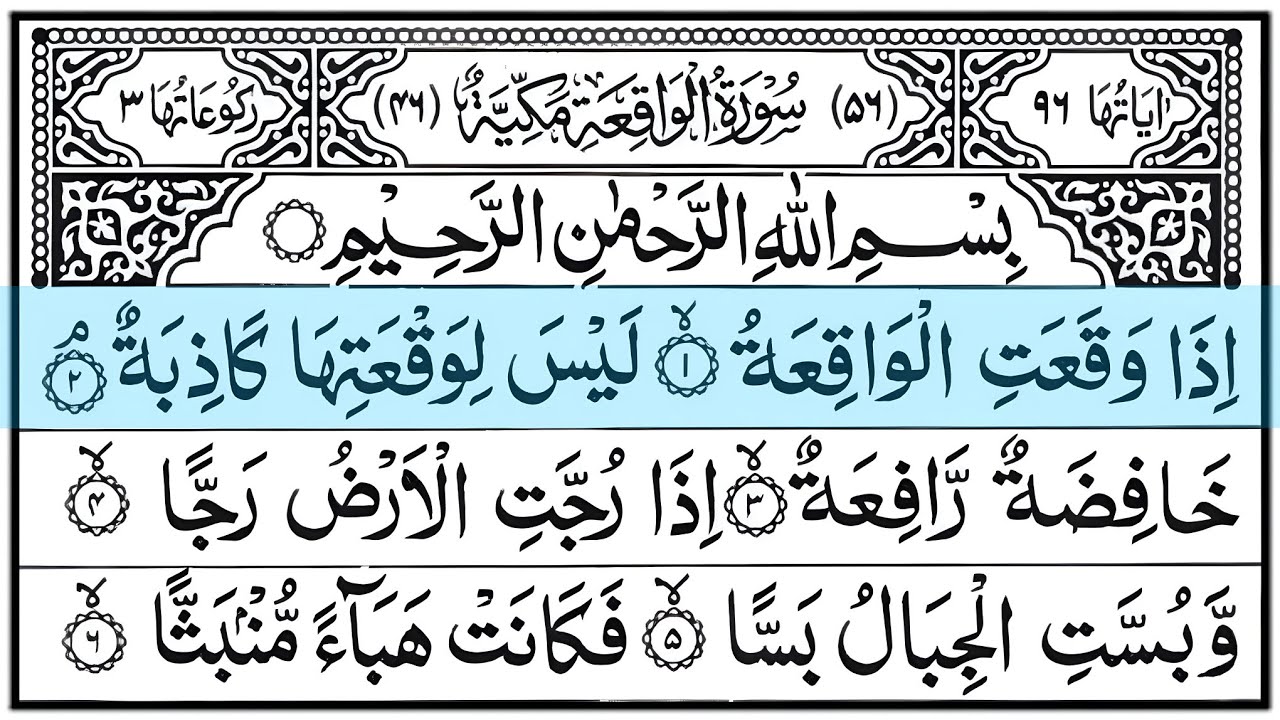 اٰيَاتُهَا ٩٦ (٥٦) سُوْرَةُ الْوَاقِعَةِ مَكِّيَّةٌ (٤٦) رُكُوْعَاتُهَا ٣
بِسْمِ اللّٰهِ الرَّحْمٰنِ الرَّحِيْمِ
اِذَا وَقَعَتِ الْوَاقِعَةُ ۙ﴿۱﴾ لَيْسَ لِوَقْعَتِهَا كَاذِبَةٌ ۘ﴿۲﴾
خَافِضَةٌ رَّافِعَةٌ ۙ﴿۳﴾ اِذَا رُجَّتِ الْاَرْضُ رَجًّا ۙ﴿۴﴾
وَّبُسَّتِ الْجِبَالُ بَسًّا ۙ﴿۵﴾ فَكَانَتْ هَبَآءً مُّنْۢبَثًّا ۙ﴿۶﴾